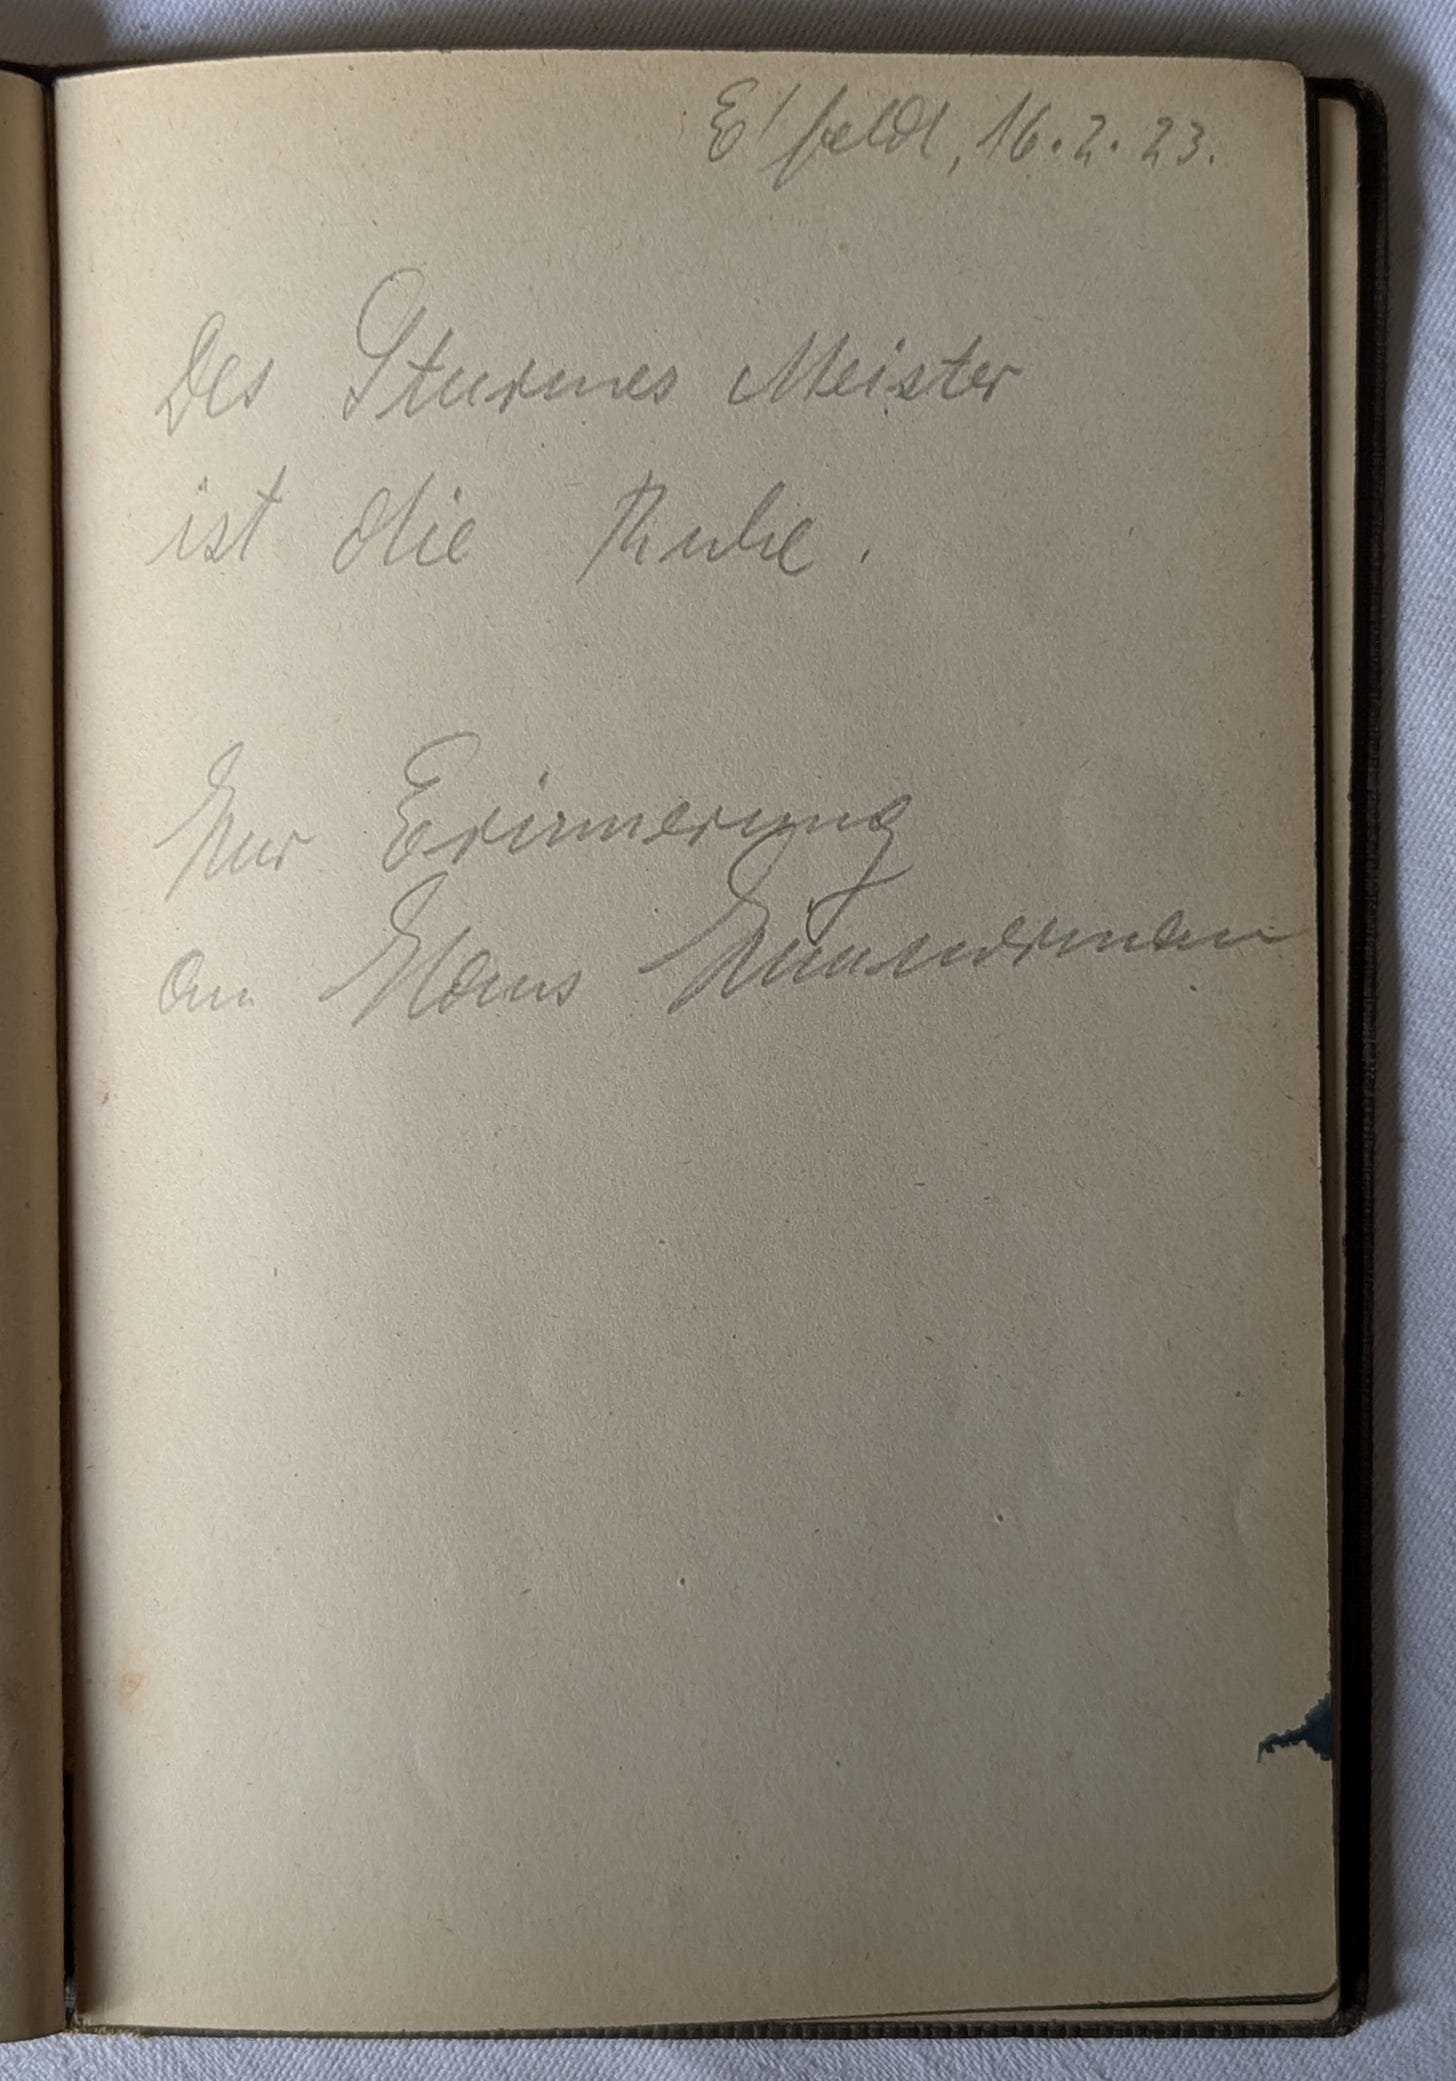 E'feldt, 16.2.23.
Des Sturmes Meister
ist die Ruhe.
Zur Erinnerung
an Hans Zimmerman